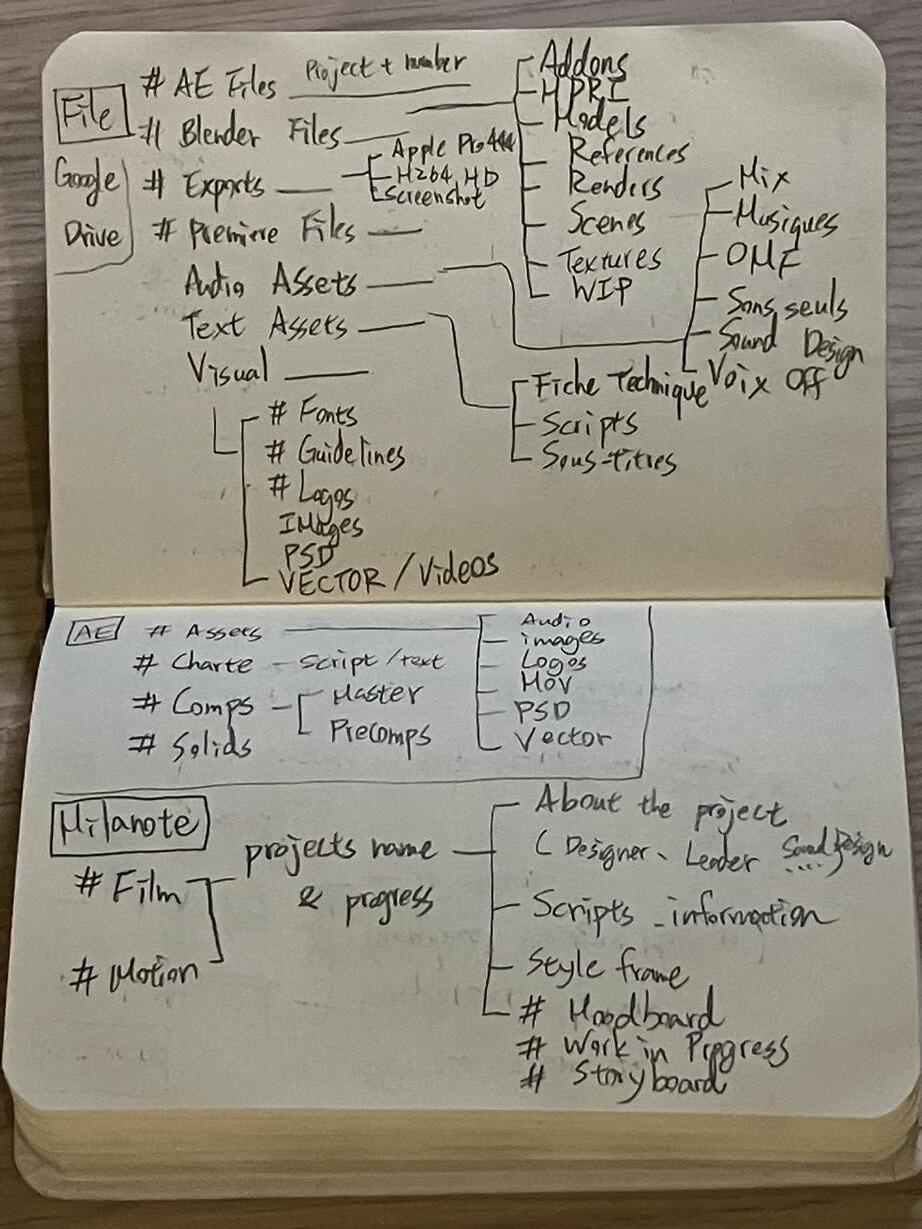 File
Google
Drive
# AE Files Project + number
# Blender Files
# Exports
# Premiere Files
Audio Assets
Text Assets
Visual
Addons
HDRI
Models
References
Renders
Scenes
Textures
WIP
Apple Pro444
H264, HD
Screenshot
Mix
Musiques
OMF
Sons seuls
Sound Design
Voix Off
Fiche Technique
Scripts
Sous-titres
# Fonts
# Guidelines
# Logos
IMages
PSD
VECTOR / Videos
AE
# Assets
# Charte - Script / text
# Comps
# Solids
Master
Precomps
Audio
images
Logos
MOV
PSD
Vector
Milanote
# Film
# Motion
projects name
& progress
About the project
( Designer、 Leader Sound Design
....
Scripts - information
Style frame
# Moodboard
# Work in Progress
# Storyboard